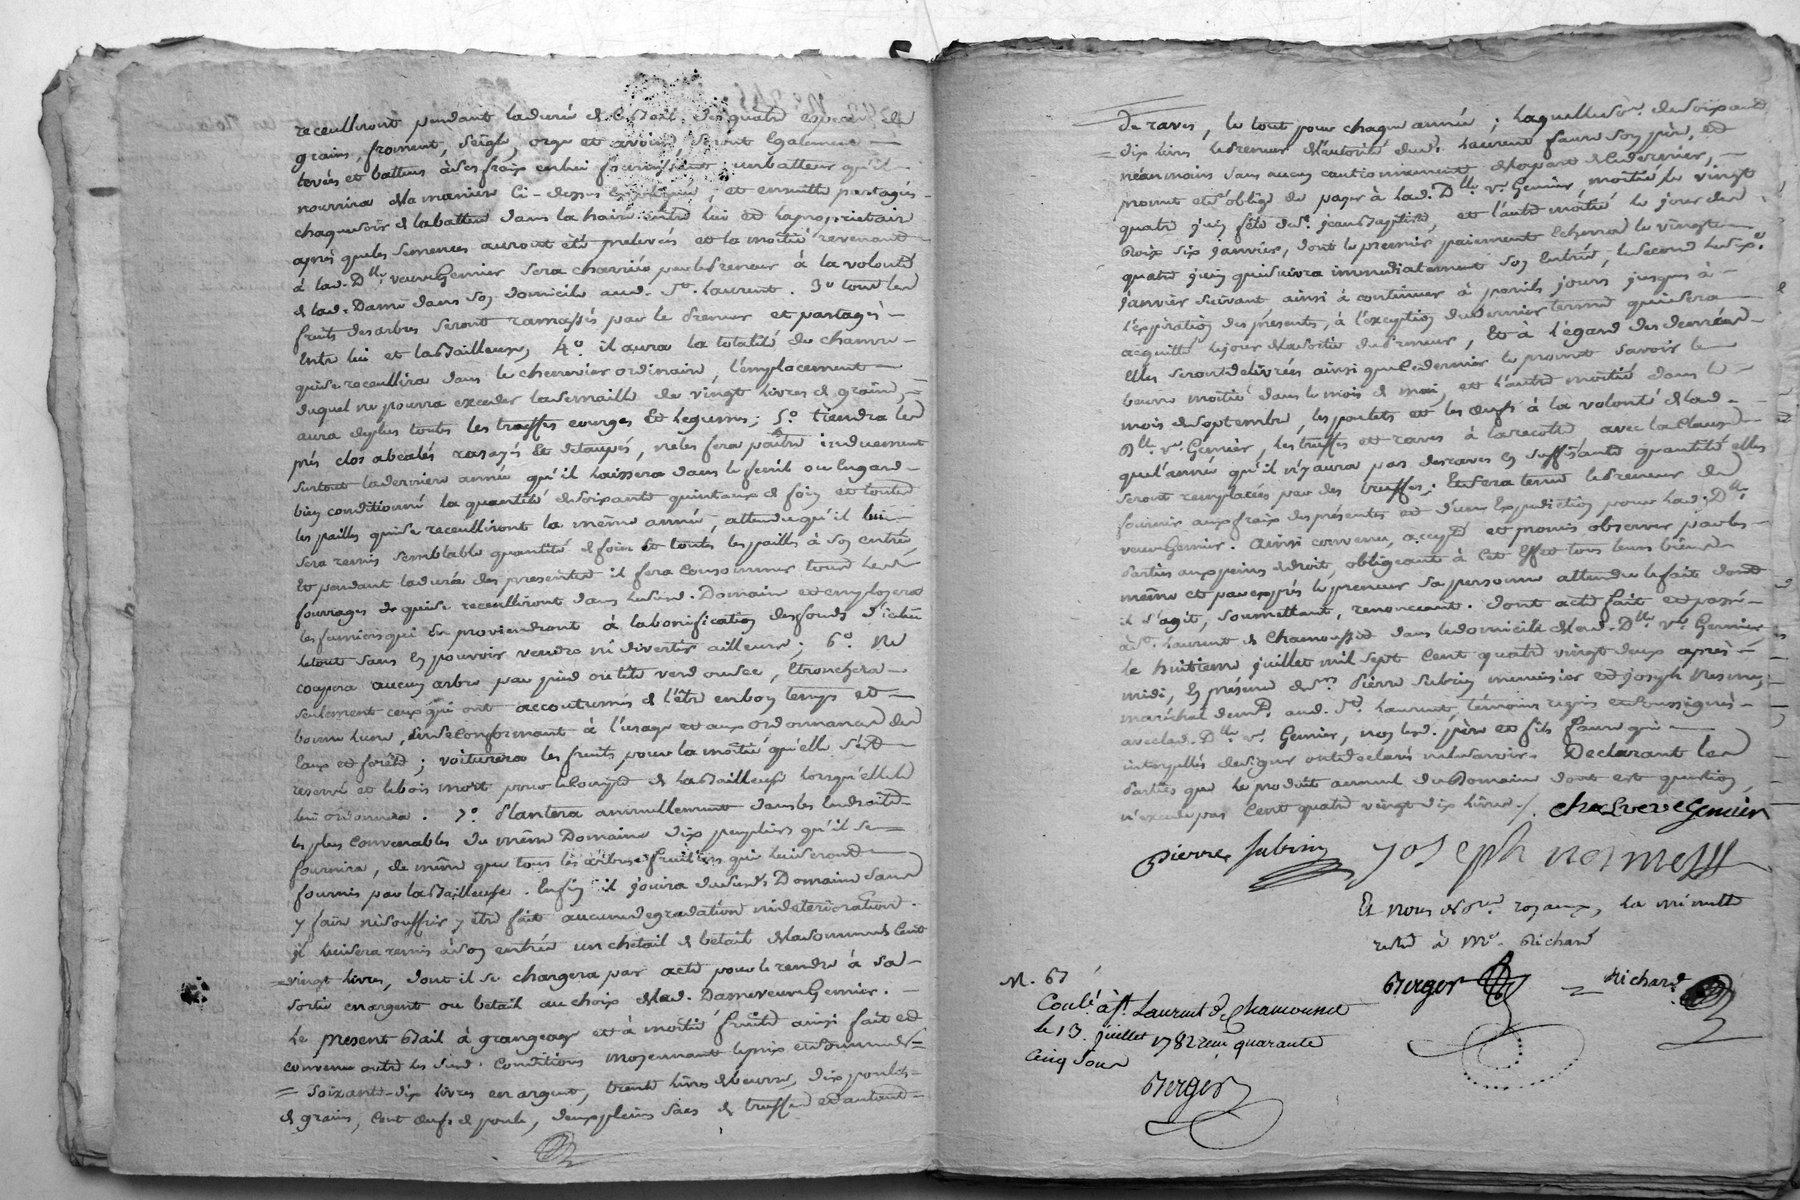 receulliront pendant la durée de ce Bail des quatre especes de
grains, froment, seigle, orge et avoine, seront Egalement
levées et battues à ses fraix en lui fournissant un batteur qu'il
nourrira de la maniere ci-dessus et ensuitte partagés
chaque soir de la batture dans la haire entre lui et la proprietaire
après que les semences auront été prelevées et la moitié revenant
à lad. Dlle veuve Gemier sera charriée par le Preneur à la volonté
de lad. Dame dans son domicile aud. St. Laurent. 3° tous les
fruits des arbres seront ramassés par le Preneur et partagés
Entre lui et la Bailleuse, 4° il aura la totalité du chanvre
qui se receullira dans le chenevier ordinaire, l'emplacement
duquel ne pourra exceder la semaille de vingt livres de graine,
aura de plus toutes les truffes courges Et legumes; 5° tiendra les
prés clos abealés rasayés Et détaupés, ne les fera paitre induement
surtout la derniere année qu'il laissera dans le fenil ou hugard
bien conditionné la quantité de soixante quintaux de foin et toutes
les pailles qui se receulliront la même année, attendu qu'il lui
sera remis semblable quantité de foin Et toutes les pailles à son entrée,
Et pendant la durée des presentes il fera consommer tous les
fourrages qui se receulliront dans le susd. Domaine et employera
les fumiers qui En proviendront à la bonification des fonds d'icelui
le tout sans En pouvoir vendre ni divertir ailleurs; 6° Ne
coupera aucun arbre par pied ou tête verd ou sec, Etronchera
seulement ceux qui ont accoutumés de l'être en bon temps et
bonne lune, En se conformant à l'usage et aux ordonnances des
Eaux et forêts; voiturera les fruits pour la moitié qu'elle s'est
reservé et le bois mort pour le compte de la Bailleuse lorsqu'elle le
lui ordonnera. 7° Plantera annuellement dans les Endroits
les plus convenables du même Domaine dix peupliers qu'il se
fournira, de même que tous les arbres fruitiers qui lui seront
fournis par la Bailleuse. Enfin il jouira du susd. Domaine sans
y faire ni souffrir y être fait aucune degradation ni deterioration.
Il lui sera remis à son entrée un chetail de betail de la somme de Cent
vingt livres, dont il se chargera par acte pour le rendre à sa
sortie en argent ou betail au choix de lad. Dame veuve Gemier.
Le present Bail à grangeage et à moitié fruits ainsi fait et
convenu outre les susd. conditions moyennant le prix et somme de
= Soixante-dix livres en argent, trente livres de beurre, dix poulets
de grains, cent œufs de poule, deux pleins sacs de truffes et autant
de raves, le tout pour chaque année; laquelle se. de soixante
= dix livres le Preneur de l'autorité dud. Laurent faure son père, et
néanmoins sans aucun cautionnement de la part de ce dernier,
promet et s'oblige de payer à lad. Dlle. ve. Gemier, moitié le vingt
quatre juin fête de St. jean Baptiste, et l'autre moitié le jour des
Rois six janvier, dont le premier paiement Echerra le vingt
quatre juin qui suivra immediatement son Entrée, le second le six
janvier suivant ainsi à continuer à pareils jours jusques à
l'expiration des présentes, à l'exception du dernier terme qui sera
acquitté le jour de la sortie du Preneur, Et à l'égard des denrées
Elles seront delivrées ainsi que ce dernier le promet savoir le
beurre moitié dans le mois de mai et l'autre moitié dans le
mois de septembre, les poulets et les œufs à la volonté de lad.
Dlle. ve. Gemier, les truffes et raves à la recolte avec la clause
que l'année qu'il n'y aura pas des raves En suffisante quantité elles
seront remplacées par des truffes; Et sera tenu le Preneur de
fournir aux fraix des présentes et d'une Expedition pour lad. Dlle.
veuve Gemier. Ainsi convenu, accepté et promis observer par les
Parties aux peines de droit, obligeant à cet Effet tous leurs biens
même et par exprès le preneur sa personne attendu le fait dont
il s'agit, soumettant, renonceant. Dont acte fait et passé
à St. Laurent de Chamousset dans le domicile de lad. Dlle. ve. Gemier
le huitieme juillet mil sept cent quatre vingt deux après
midi, En présence de Srs. Pierre Subrin menuisier et Joseph Nesmes
maréchal demt. aud. St. Laurent, témoins requis et soussignés
avec lad. Dlle. ve. Gemier, non lesd. père et fils faure qui
interpellés de signer ont declarés ne le savoir. Declarant les
Parties que le produit annuel du Domaine dont est question,
n'excede pas Cent quatre vingt dix livres./. veuve Gemier
pierre subrin joseph nesmess
Et nous No.res royaux, la minutte
restée à Me. Richard
Berger Richard
Conle. à St. Laurent de Chamousset
le 13. juillet 1782 reçu quarante
Cinq Sous
Berger